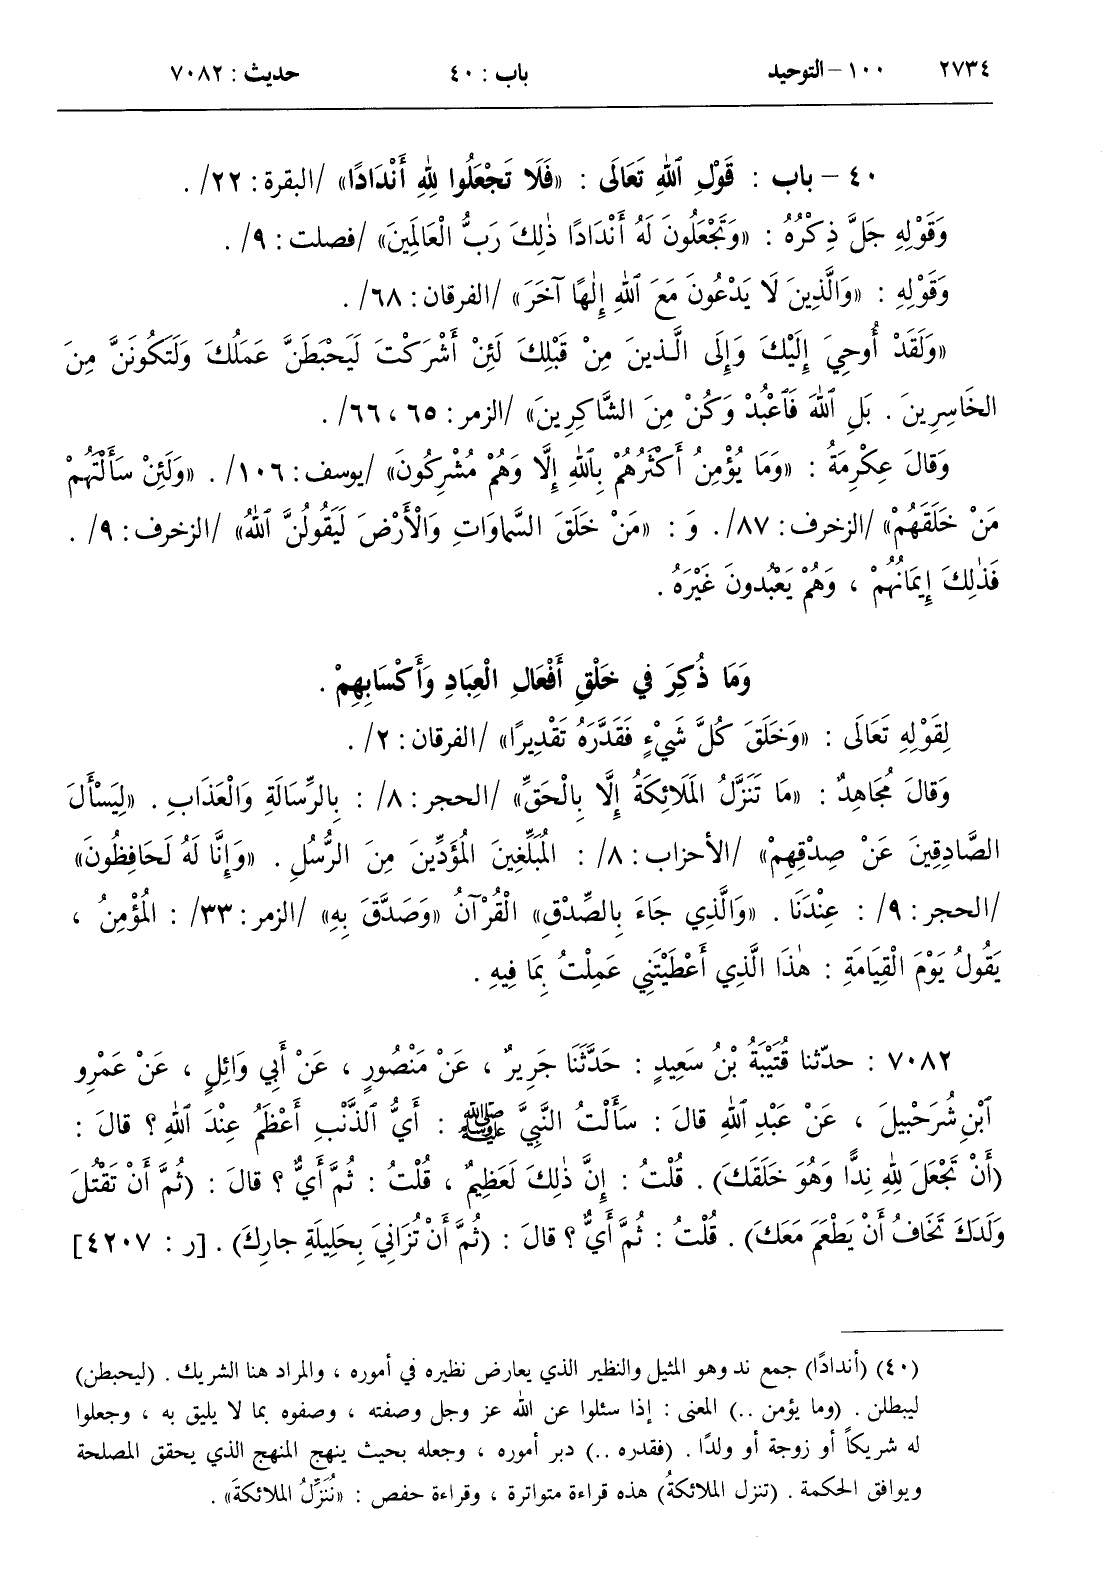 ٢٧٣٤ ١٠٠ – التوحيد باب : ٤٠ حديث : ٧٠٨٢
٤٠ – باب : قَوْلِ ٱللهِ تَعَالَى : «فَلَا تَجْعَلُوا لِلهِ أَنْدَادًا» /البقرة : ٢٢/ .
وَقَوْلِهِ جَلَّ ذِكْرُهُ : «وَتَجْعَلُونَ لَهُ أَنْدَادًا ذٰلِكَ رَبُّ الْعَالَمِينَ» /فصلت : ٩/ .
وَقَوْلِهِ : «وَالَّذِينَ لَا يَدْعُونَ مَعَ ٱللهِ إِلٰهًا آخَرَ» /الفرقان : ٦٨/ .
«وَلَقَدْ أُوحِيَ إِلَيْكَ وَإِلَى الَّذِينَ مِنْ قَبْلِكَ لَئِنْ أَشْرَكْتَ لَيَحْبَطَنَّ عَمَلُكَ وَلَتَكُونَنَّ مِنَ
الخَاسِرِينَ . بَلِ ٱللهَ فَٱعْبُدْ وَكُنْ مِنَ الشَّاكِرِينَ» /الزمر : ٦٥ ، ٦٦/ .
وَقَالَ عِكْرِمَةُ : «وَمَا يُؤْمِنُ أَكْثَرُهُمْ بِٱللهِ إِلَّا وَهُمْ مُشْرِكُونَ» /يوسف : ١٠٦/ . «وَلَئِنْ سَأَلْتَهُمْ
مَنْ خَلَقَهُمْ» /الزخرف : ٨٧/ . وَ : «مَنْ خَلَقَ السَّماوَاتِ وَالْأَرْضَ لَيَقُولُنَّ ٱللهُ» /الزخرف : ٩/ .
فَذٰلِكَ إِيمَانُهُمْ ، وَهُمْ يَعْبُدونَ غَيْرَهُ .
وَمَا ذُكِرَ فِي خَلْقِ أَفْعَالِ الْعِبَادِ وَأَكْسَابِهِمْ .
لِقَوْلِهِ تَعَالَى : «وَخَلَقَ كُلَّ شَيْءٍ فَقَدَّرَهُ تَقْدِيرًا» /الفرقان : ٢/ .
وَقَالَ مُجَاهِدٌ : «مَا تَنَزَّلُ المَلَائِكَةُ إِلَّا بِالْحَقِّ» /الحجر : ٨/ : بِالرِّسَالَةِ وَالْعَذَابِ . «لِيَسْأَلَ
الصَّادِقِينَ عَنْ صِدْقِهِمْ» /الأحزاب : ٨/ : المُبَلِّغِينَ المُؤَدِّينَ مِنَ الرُّسُلِ . «وَإِنَّا لَهُ لَحَافِظُونَ»
/الحجر : ٩/ : عِنْدَنَا . «وَالَّذِي جَاءَ بِالصِّدْقِ» الْقُرْآنُ «وَصَدَّقَ بِهِ» /الزمر : ٣٣/ : المُؤْمِنُ ،
يَقُولُ يَوْمَ الْقِيَامَةِ : هٰذَا الَّذِي أَعْطَيْتَنِي عَمِلْتُ بِمَا فِيهِ .
٧٠٨٢ : حدّثنا قُتَيْبَةُ بْنُ سَعِيدٍ : حَدَّثَنَا جَرِيرٌ ، عَنْ مَنْصُورٍ ، عَنْ أَبِي وَائِلٍ ، عَنْ عَمْرِو
ٱبْنِ شُرَحْبِيلَ ، عَنْ عَبْدِ ٱللهِ قالَ : سَأَلْتُ النَّبِيَّ ﷺ : أَيُّ الذَّنْبِ أَعْظَمُ عِنْدَ ٱللهِ ؟ قالَ :
(أَنْ تَجْعَلَ لِلهِ نِدًّا وَهُوَ خَلَقَكَ) . قُلْتُ : إِنَّ ذٰلِكَ لَعَظِيمٌ ، قُلْتُ : ثُمَّ أَيٌّ ؟ قالَ : (ثُمَّ أَنْ تَقْتُلَ
وَلَدَكَ تَخَافُ أَنْ يَطْعَمَ مَعَكَ) . قُلْتُ : ثُمَّ أَيٌّ ؟ قالَ : (ثُمَّ أَنْ تُزَانِيَ بِحَلِيلَةِ جارِكَ) . [ر : ٤٢٠٧]
(٤٠) (أندادًا) جمع ند وهو المثيل والنظير الذي يعارض نظيره في أموره ، والمراد هنا الشريك . (ليحبطن)
ليبطلن . (وما يؤمن ..) المعنى : إذا سئلوا عن الله عز وجل وصفته ، وصفوه بما لا يليق به ، وجعلوا
له شريكاً أو زوجة أو ولدًا . (فقدره ..) دبر أموره ، وجعله بحيث ينهج المنهج الذي يحقق المصلحة
ويوافق الحكمة . (تنزل الملائكةُ) هذه قراءة متواترة ، وقراءة حفص : «نُنَزِّلُ الملائكةَ» .